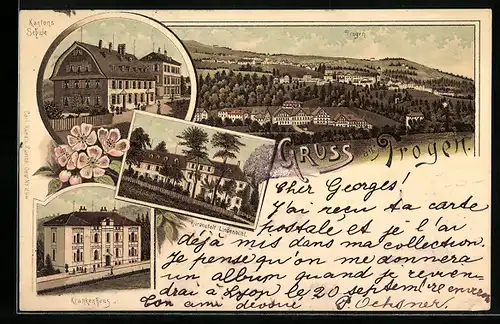 Kantons
Schule
Trogen
GRUSS aus Trogen.
Kuranstalt Lindenbühl.
Krankenhaus
Cher Georges!
J'ai reçu ta carte
postale et je l'ai
déjà mis dans ma collection.
Je pense qu'on me donnera
un album quand je revien-
drai à Lyon le 20 septembre environ
Ton ami dévoué P. Ochsner.